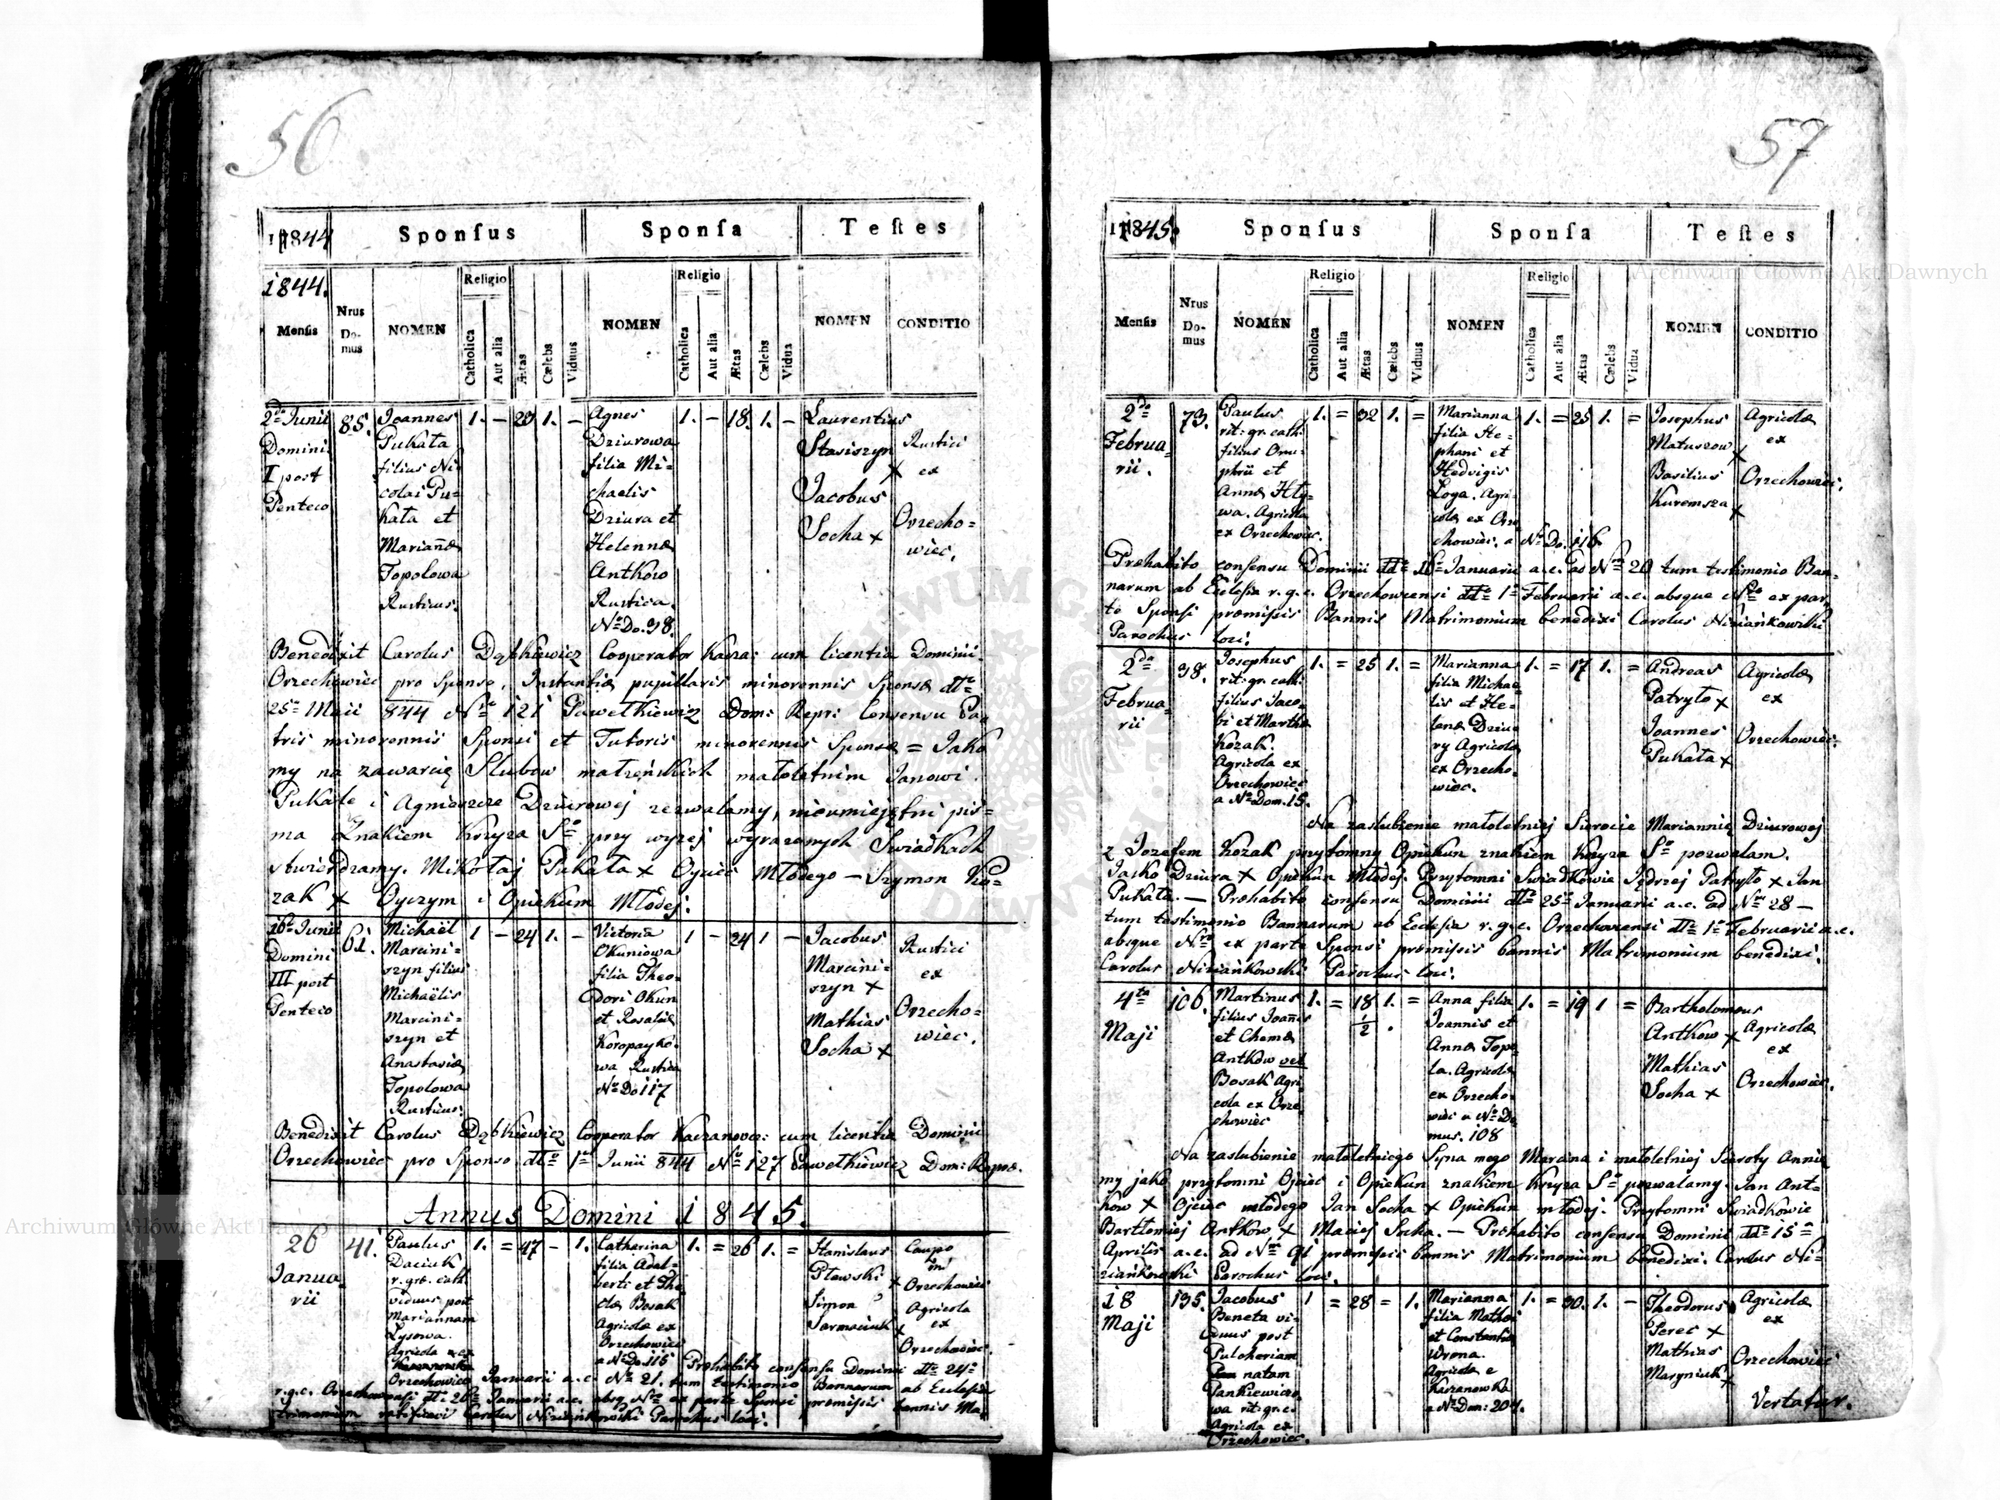 56
1844 Sponſus Sponſa Teſtes
1844. Religio Religio
Menſis Nrus Do-mus NOMEN Catholica Aut alia Ætas Cælebs Viduus NOMEN Catholica Aut alia Ætas Cælebs Vidua NOMEN CONDITIO
2da Junii
Domini
I post
Penteco
85.
Joannes
Pukała
filius Ni-
colai Pu-
kała et
Mariañæ
Topolowa
Rusticus.
1. - 20 1. -
Agnes
Dziurowa
filia Mi-
chaelis
Dziura et
Helennæ
Antkow
Rustica.
No Do. 98.
1. - 18. 1. -
Laurentius
Stasiszyn x
Jacobus
Socha x
Rustici
ex
Orzecho=
wiec.
Benedixit Carolus Dąbkiewicz Cooperator Kacza: cum licentia Dominii.
Orzechowiec pro Sponso, Instantiæ pupillaris minorennis Sponsæ dto
25a Maii 844 Nro 121 Pawełkiewicz Dom: Repr: Consensu Pa-
tris minorennis Sponsi et Tutoris minorennis Sponsæ = Jako
my na zawarcię Slubow małzeńskich małoletnim Janowi
Pukale i Agnieszce Dziurowej zezwalamy, nieumiejętni pis-
ma Znakiem Krzyza So przy wyzej wyrazonych Swiadkach
stwierdzamy. Mikołaj Pukała x Ojciec Młodego - Szymon Ko-
zak x Oyczym i Opiekun Młodej.
16a Junii
Domini
III post
Penteco
61.
Michaël
Marcini-
szyn filius
Michaëlis
Marcini-
szyn et
Anastasiæ
Topolowa
Rusticus.
1 - 24 1. -
Victoria
Okuniowa
filia Theo-
dori Okun
et Rosaliæ
Koropayko-
wa Rustica
No Do 117
1 - 24 1 -
Jacobus
Marcini-
szyn x
Mathias
Socha x
Rustici
ex
Orzecho-
wiec.
Benedixit Carolus Dąbkiewicz Cooperator Kaczanovec: cum licentia Dominii
Orzechowiec pro Sponso dto 1a Junii 844 Nro 127 Pawełkiewicz Dom: Repræ.
Annus Domini 1845.
26
Janua-
rii
41.
Paulus
Daciuk
r. gre. cath.
viduus post
Mariannam
Lysowa.
Agricola ex
Orzechowiec
1. = 47 - 1.
Catharina
filia Adal-
berti et The-
clæ Bosak
Agricolæ ex
Orzechowiec
a No Do. 115
1. = 26 1. =
Stanislaus
Pławski x
Simon
Sarmaciuk x
Caupo
in
Orzechowiec
Agricola
ex
Orzechowiec.
Prohabito consensu Dominii dto 24a
Januarii a. c. No 21. tum testimonio Bannorum ab Ecclesia
r. g. c. Orzechowensi dto 26a Januarii a. c. absq Nro ex parte Sponsi præmissis bannis Ma-
trimonium ratificavi Carolus Niziańkowski Parochus loci.
57
1845. Sponſus Sponſa Teſtes
Religio Religio
Menſis Nrus Do-mus NOMEN Catholica Aut alia Ætas Cælebs Viduus NOMEN Catholica Aut alia Ætas Cælebs Vidua NOMEN CONDITIO
2da
Februa-
rii.
73.
Paulus
rit: gr. cath:
filius Onu-
phrii et
Annæ Hły-
wa. Agricola
ex Orzechowiec.
1. = 32 1. =
Marianna
filia Ste-
phani et
Hedvigis
Łoga. Agri-
colæ ex Orze
chowiec. a No. Do. 116.
1. = 25 1. =
Josephus
Matuszow x
Basilius
Kuremsza x
Agricolæ
ex
Orzechowiec.
Prohabito consensu Dominii dto 16a Januarii a. c. ad Nrm 20 tum testimonio Ban-
norum ab Ecclesia r. g. c. Orzechowensi dto 1a Februarii a. c. absque Nro ex par-
te Sponsi præmissis Bannis Matrimonium benedixi Carolus Niziańkowski
Parochus loci.
2da
Februa-
rii
98.
Josephus
rit: gr. cath:
filius Jaco-
bi et Marthæ
Kozak.
Agricola ex
Orzechowiec
a No Dom. 15.
1. = 25 1. =
Marianna
filia Michae-
lis et He-
lenæ Dziu-
ry Agricolæ
ex Orzecho-
wiec.
1. = 17 1. =
Andreas
Patryło x
Joannes
Pukała x
Agricolæ
ex
Orzechowiec.
Na zaslubienie małoletniej Sierocie Mariannie Dziurowej
z Jozefem Kozak przytomny Opiekun znakiem Krzyza So pozwalam.
Jasko Dziura x Opiekun Młodej. Przytomni Swiadkowie Jędrzej Patryło x Jan
Pukała. - Prohabito consensu Dominii dto 25a Januarii a. c. ad Nrm 28 -
tum testimonio Bannorum ab Ecclesia r. g. c. Orzechowensi dto 1a Februarii a. c.
absque Nro ex parte Sponsi præmissis bannis Matrimonium benedixi.
Carolus Niziańkowski Parochus loci.
4ta
Maji
106.
Martinus
filius Joañis
et Chemæ
Antków vel
Bosak Agri
cola ex Orze
chowiec
1. = 18 1/2 1. =
Anna filia
Joannis et
Annæ Topo-
la. Agricolæ
ex Orzecho-
wiec a No. Do
mus. 108
1. = 19 1 =
Bartholomeus
Antkow x
Mathias
Socha x
Agricolæ
ex
Orzechowiec.
Na zaslubienie małoletniego Syna mego Marcina i małoletniej Sieroty Annie
my jako przytomni Ojciec i Opiekun znakiem Krzyza So pozwalamy. Jan Ant-
kow x Ojciec młodego Jan Socha x Opiekun młodej. Przytomni Swiadkowie
Bartłomiej Antkow x Maciej Socha. - Prohabito consensu Dominii dto 15a
Aprilis a. c. ad Nrm 91 præmissis bannis Matrimonium benedixi. Carolus Ni-
ziańkowski Parochus loci.
18
Maji
135.
Jacobus
Beneta vi-
duus post
Pulcheriam
natam
Pankiewiczo-
wa rit: gr. c.
Agricola ex
Orzechowiec.
1 = 28 = 1.
Marianna
filia Mathei
et Constantiæ
Wrona.
Agricola e
Kaczanowka
a No Dom: 204.
1. = 30. 1. -
Theodorus
Serec x
Mathias
Maryniuk x
Agricolæ
ex
Orzechowiec
Vertatur.
Archiwum Główne Akt Dawnych
Archiwum Główne Akt Dawnych